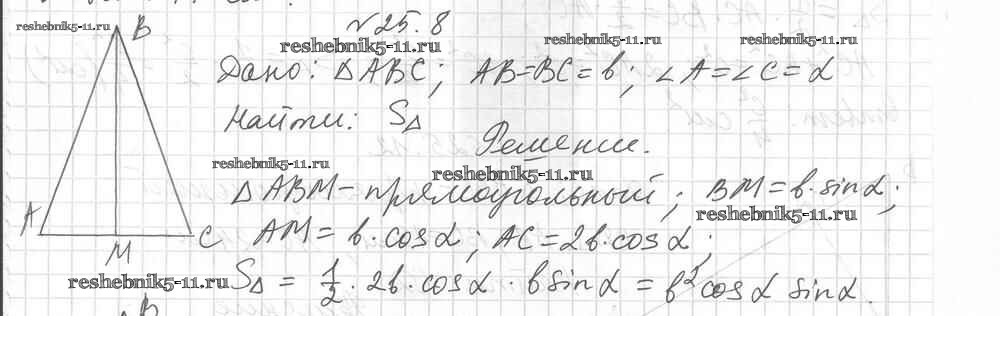 №25.8
reshebnik5-11.ru
B
reshebnik5-11.ru
reshebnik5-11.ru
reshebnik5-11.ru
Дано: △ABC; AB=BC=b; ∠A=∠C=α
Найти: S△
Решение.
reshebnik5-11.ru
reshebnik5-11.ru
△ABM - прямоугольный; BM=b·sinα;
reshebnik5-11.ru
A
M
C
AM=b·cosα; AC=2b·cosα;
reshebnik5-11.ru
S△ = 1/2 · 2b·cosα · b sinα = b² cosα sinα.
B